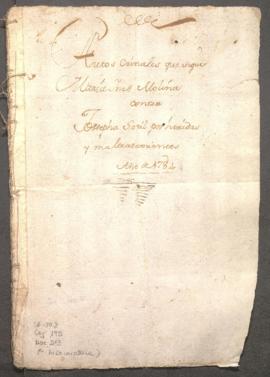 Autos Criminales que sigue
Maria Ines Molina
contra
Josepha Soril por heridas
y maltratamientos
Año de 1784
Caj 195
Doc 253